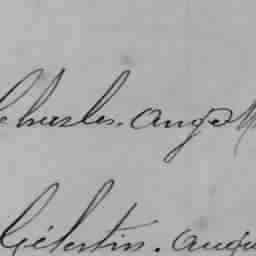 Charles. Ange
Célestin. Augu